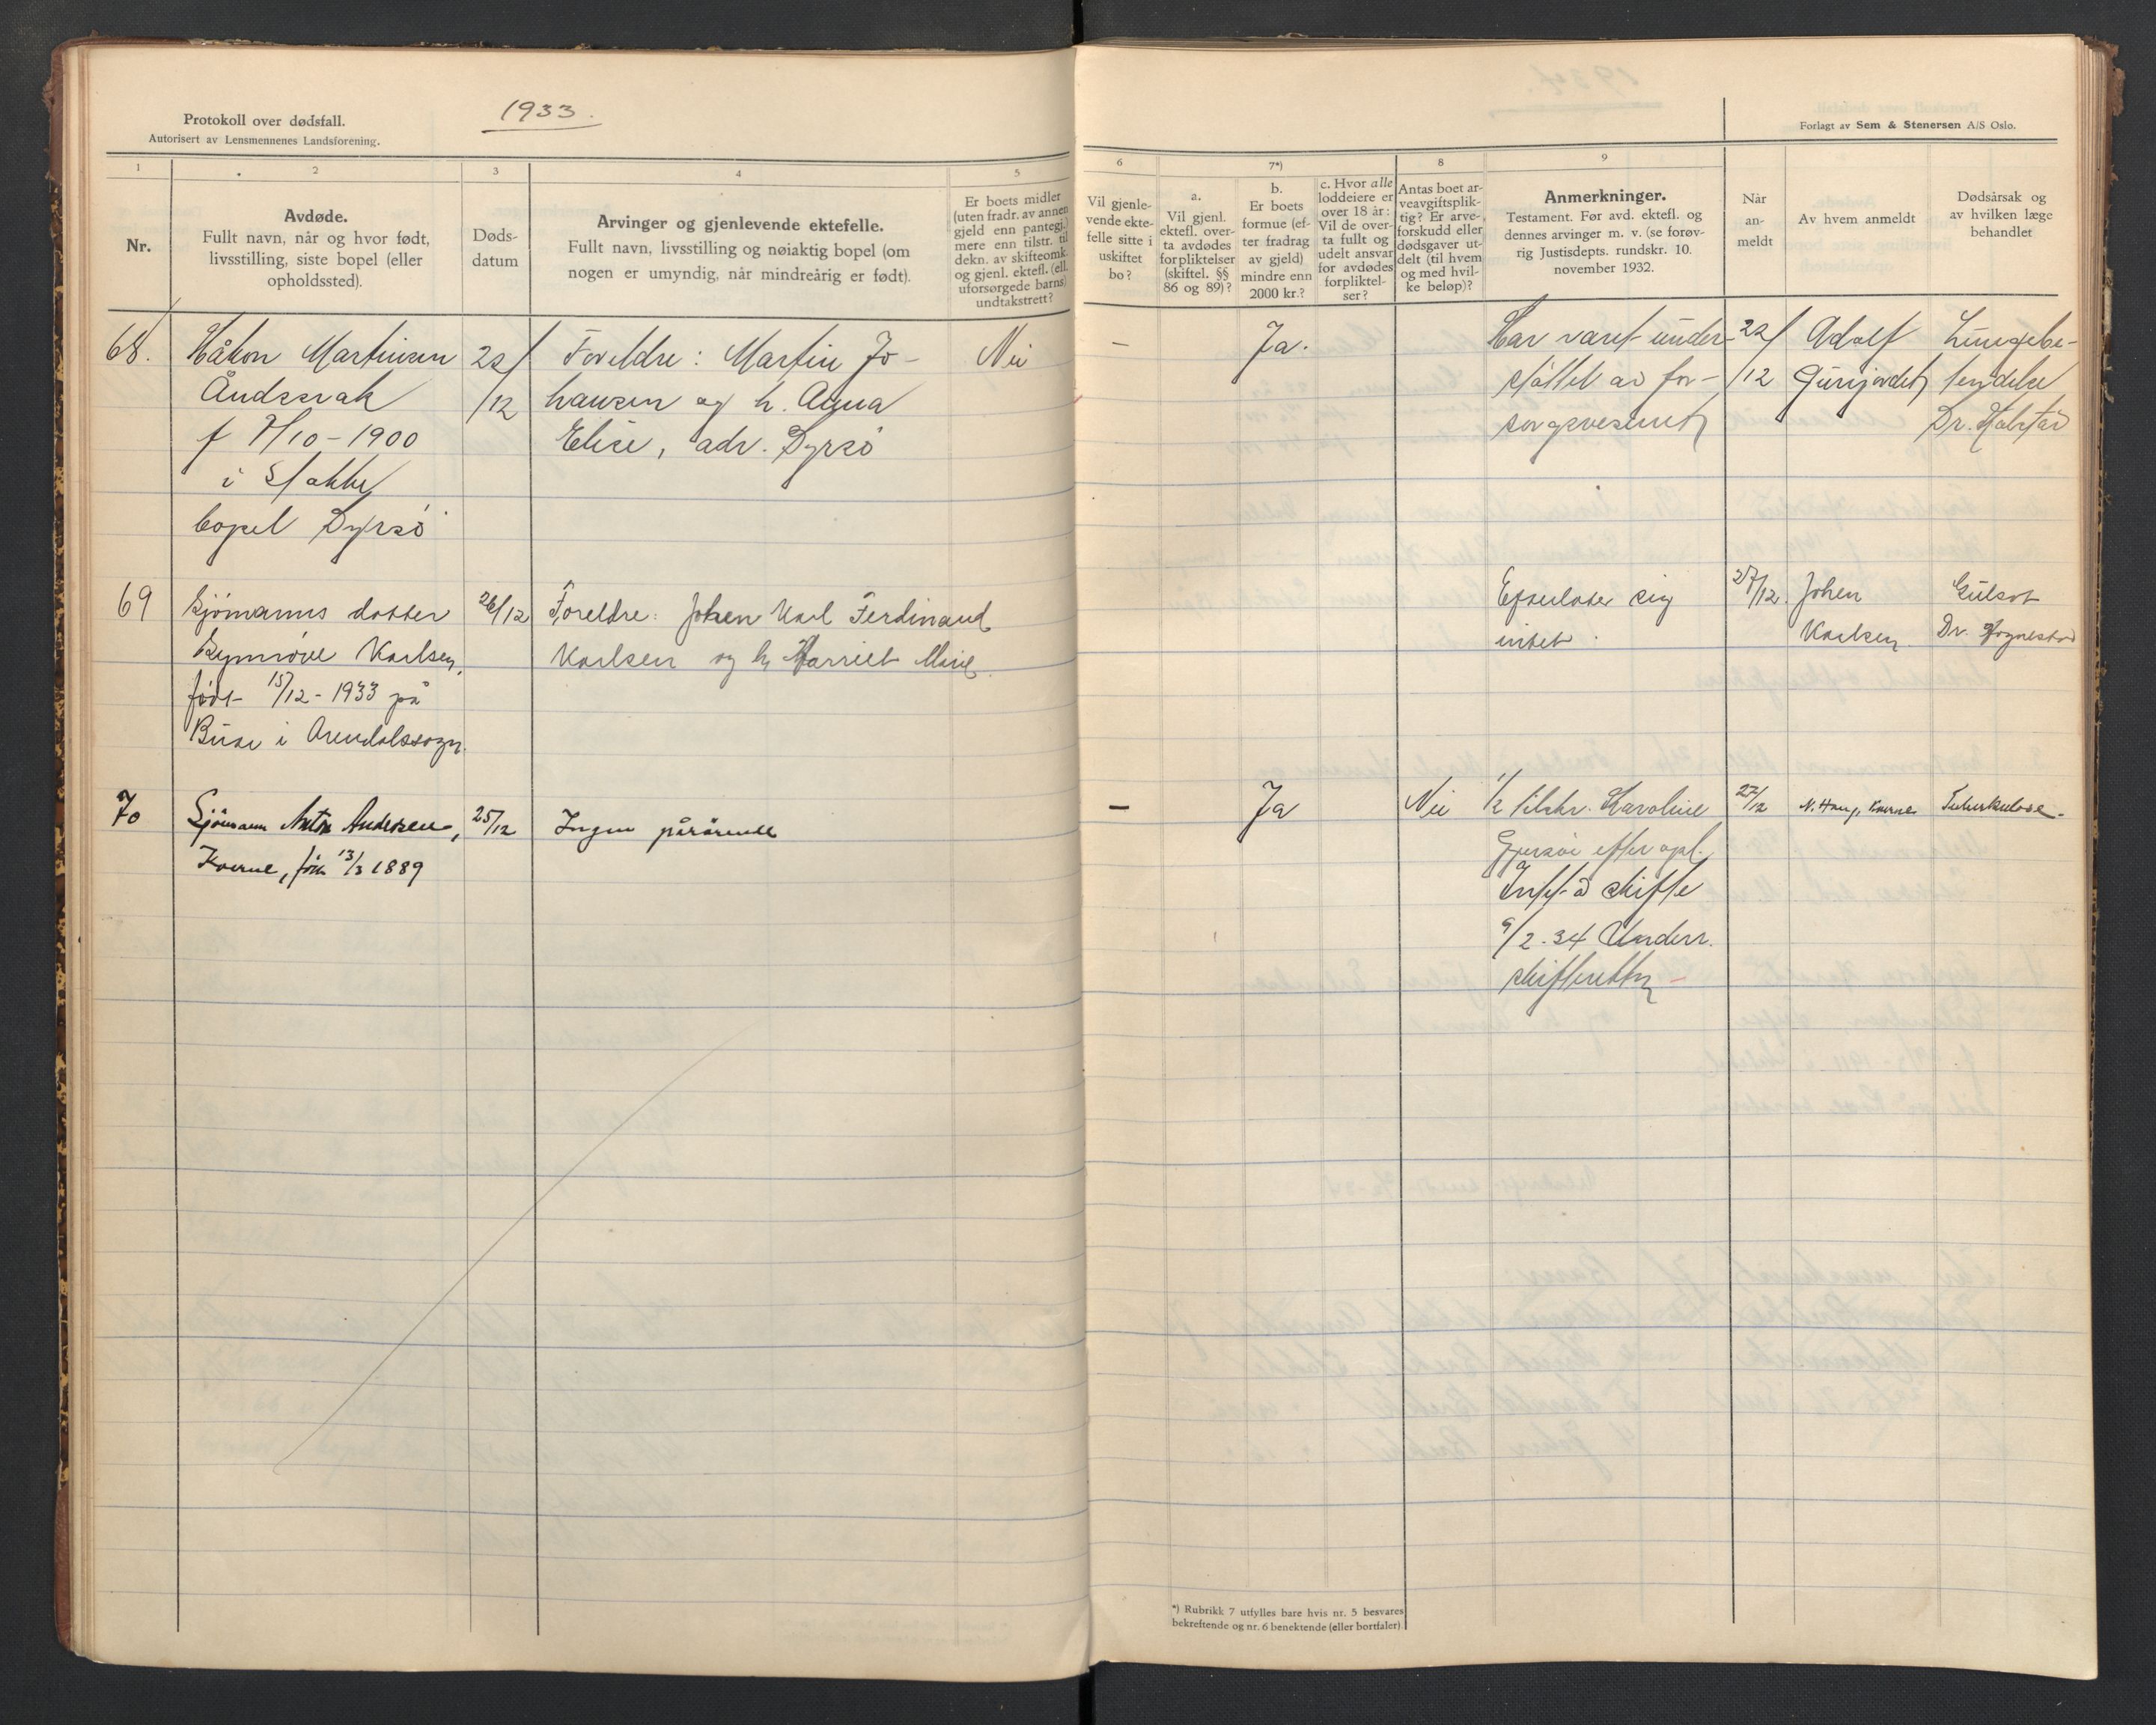 Protokoll over dødsfall.
Autorisert av Lensmennenes Landsforening.
1933.
Forlagt av Sem & Stenersen A/S Oslo.
1
2
3
4
5
6
7*)
8
9
Nr.
Avdøde.
Fullt navn, når og hvor født,
livsstilling, siste bopel (eller
opholdssted).
Døds-
datum
Arvinger og gjenlevende ektefelle.
Fullt navn, livsstilling og nøiaktig bopel (om
nogen er umyndig, når mindreårig er født).
Er boets midler
(uten fradr. av annen
gjeld enn pantegj.)
mere enn tilstr. til
dekn. av skifteomk.
og gjenl. ektefl. (ell.
uforsørgede barns)
undtakstrett?
Vil gjenle-
vende ekte-
felle sitte i
uskiftet
bo?
a.
Vil gjenl.
ektefl. over-
ta avdødes
forpliktelser
(skiftel. §§
86 og 89)?
b.
Er boets
formue (ef-
ter fradrag
av gjeld)
mindre enn
2000 kr.?
c. Hvor alle
loddeiere er
over 18 år:
Vil de over-
ta fullt og
udelt ansvar
for avdødes
forpliktel-
ser?
Antas boet ar-
veavgiftsplik-
tig? Er arve-
forskudd eller
dødsgaver ut-
delt (til hvem
og med hvil-
ke beløp)?
Anmerkninger.
Testament. Før avd. ektefl. og
dennes arvinger m. v. (se forøv-
rig Justisdepts. rundskr. 10.
november 1932.
Når
an-
meldt
Av hvem anmeldt
Dødsårsak og
av hvilken læge
behandlet
68.
Håkon Martinsen
f 7/10-1900
i Stokke
bopel Dyrsö
22/
/12
Foreldre: Martin Jo-
hansen og h. Anna
Elise, adr. Dyrsö
Nei
–
Ja.
Har været under-
støttet av for-
sorgsvesenet
22/
/12
Adolf
Lungebe-
tendelse
Dr.
69
Sjömanns datter
Synnöve Karlsen,
født 15/12-1933 på
i Arendalssogn.
26/12
Foreldre: Johan Karl Ferdinand
Karlsen og h. Harriet Marie.
Efterlater sig
intet.
27/12.
Johan
Karlsen
Gulsot
Dr. Hognestad
70
Sjömann Anton Andersen,
født 13/3 1889
25/12
Ingen pårörende
–
Ja
Nei
1/2 tilskr. Karoline
efter opl.
Inst. å skifte
9/2-34 Underr.
skifteretten
27/12
Tuberkulose.
*) Rubrikk 7 utfylles bare hvis nr. 5 besvares
bekreftende og nr. 6 benektende (eller bortfaler).